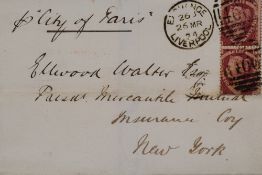 pr "City of Paris"
EXCHANGE
26 MR
74
LIVERPOOL
Ellwood Walter Esq
Mercantile Mutual
Insurance Coy
New York